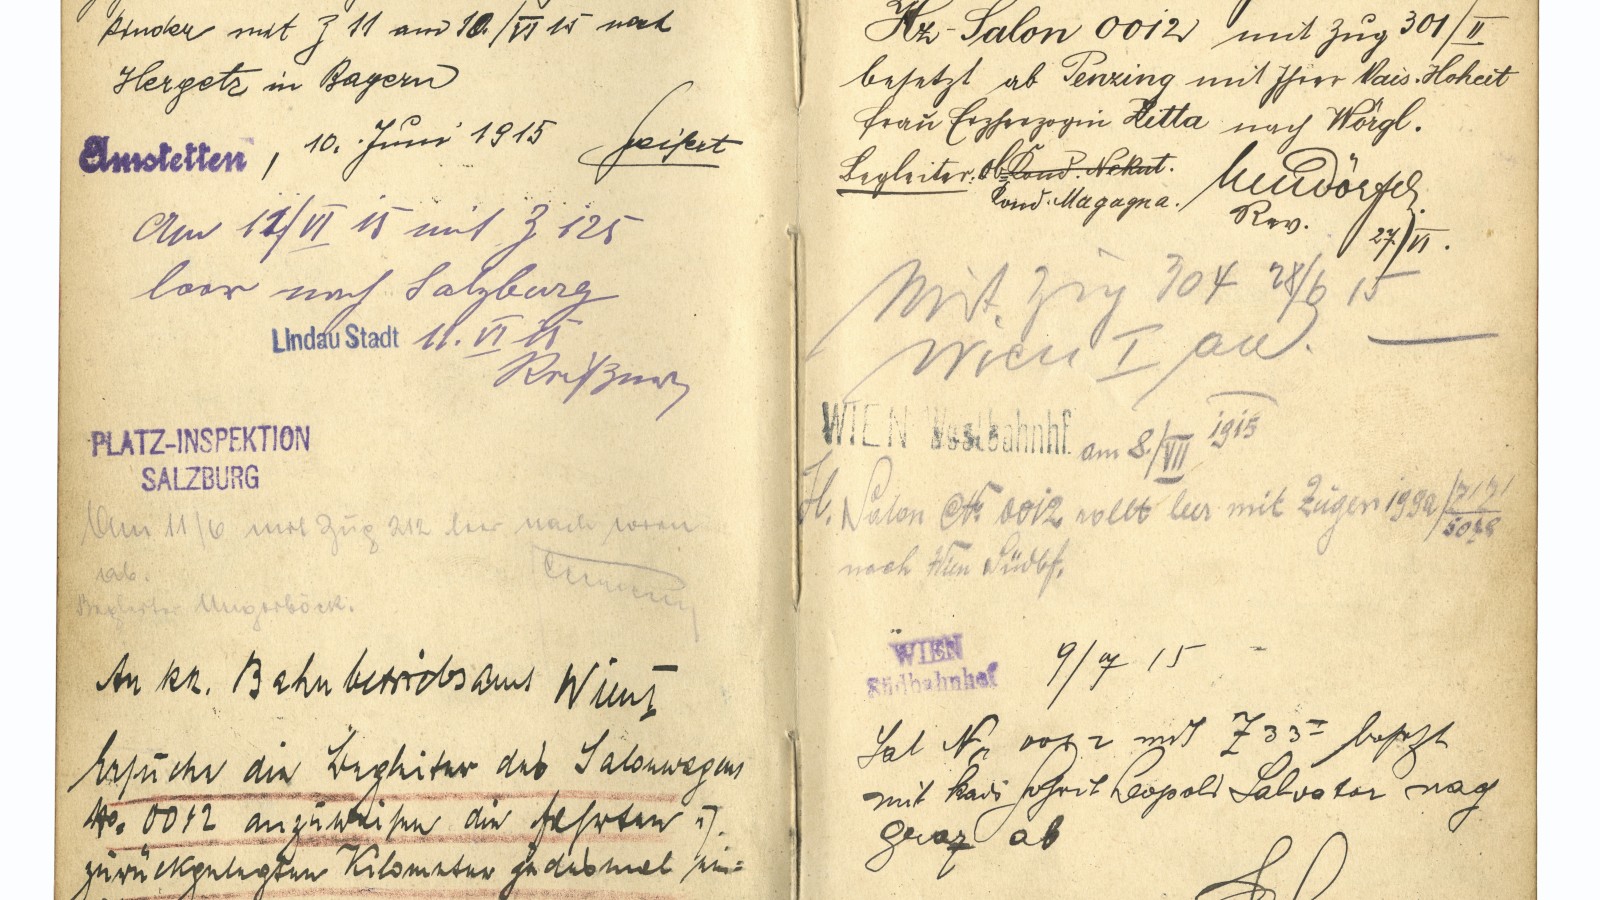 Kinder mit Z 11 am 10./VI 15 nach
Hergatz in Bayern
Amstetten, 10. Juni 1915 Seifert
Am 11/VI 15 mit Z 125
leer nach Salzburg
Lindau Stadt 11. VI 15
PLATZ-INSPEKTION
SALZBURG
Am 11/6 mit Zug 212 leer nach Wien
ab.
Begleiter Ungerböck.
An kk. Bahnbetriebsamt Wien I
Ersuche die Begleiter des Salonwagens
No. 0012 anzuweisen die Fahrten u.
zurückgelegten Kilometer jedesmal ein=
Hz-Salon 0012 mit Zug 301/II
besetzt ab Penzing mit Ihrer Kais. Hoheit
Frau Erzherzogin Zitta nach Wörgl.
Begleiter: Ob Kond. Nekut.
Kond. Magagna.
Rev.
27/VI.
Mit Zug 304 28/6 15
Wien I an.
WIEN Westbahnhf. am 8./VII 1915
H. Salon Nr 0012 rollt leer mit Zügen 199a/
nach Wien Südbf.
WIEN
Südbahnhof
9/7 15
Sal Nr 0012 mit Z 33 besetzt
mit Kais Hoheit Leopold Salvator nach
Graz ab